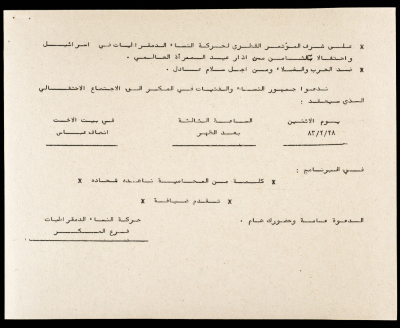 x على شرف المؤتمر القطري لحركة النساء الدمقراطيات في اسرائيل
واحتفالا بالثامن من اذار عيد المرأة العالمي .
x ضد الحرب والغلاء ومن اجل سلام عادل .
ندعوا جمهور النساء والفتيات في المكر الى الاجتماع الاحتفالي
الذي سيعقد :
يوم الاثنين الساعة الثالثة في بيت الاخت
٨٣/٢/٢٨ بعد الظهر انصاف عباس
في البرنامج :
x كلمة من المحامية ناهده شحاده x
x تقدم ضيافة x
الدعوة عامة وحضورك هام . حركة النساء الدمقراطيات
فرع المكر